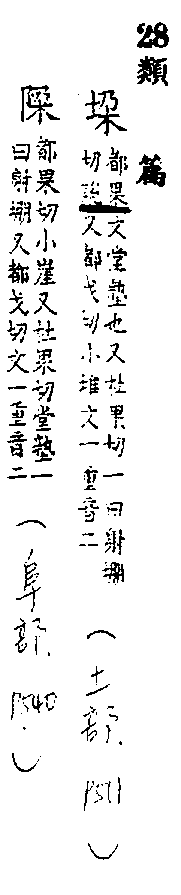 28類篇
垛
都果文堂塾也又杜果切一曰射堋
切說又都戈切小堆文一重音二
(土部. P511)
都果切小崖又杜果切堂塾一
曰射堋又都戈切文一重音二
(阜部. P540.)